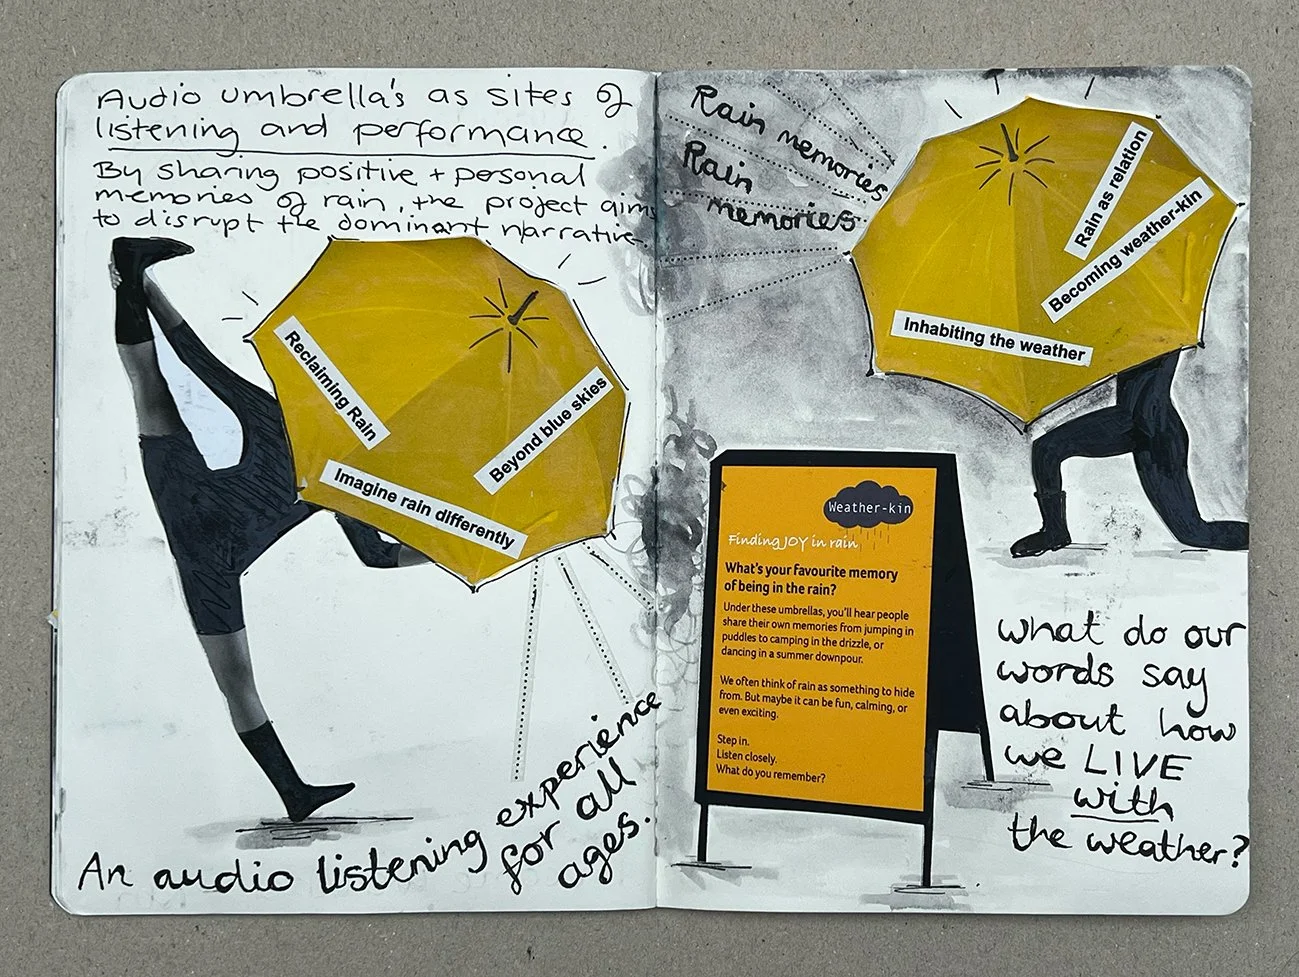 Audio umbrella's as sites of
listening and performance.
By sharing positive + personal
memories of rain, the project aims
to disrupt the dominant narrative.
Reclaiming Rain
Beyond blue skies
Imagine rain differently
An audio listening experience
for all
ages.
Rain memories
Rain
memories
Rain as relation
Becoming weather-kin
Inhabiting the weather
Weather-kin
Finding JOY in rain
What's your favourite memory
of being in the rain?
Under these umbrellas, you'll hear people
share their own memories from jumping in
puddles to camping in the drizzle, or
dancing in a summer downpour.
We often think of rain as something to hide
from. But maybe it can be fun, calming, or
even exciting.
Step in.
Listen closely.
What do you remember?
what do our
words say
about how
we LIVE
with
the weather?